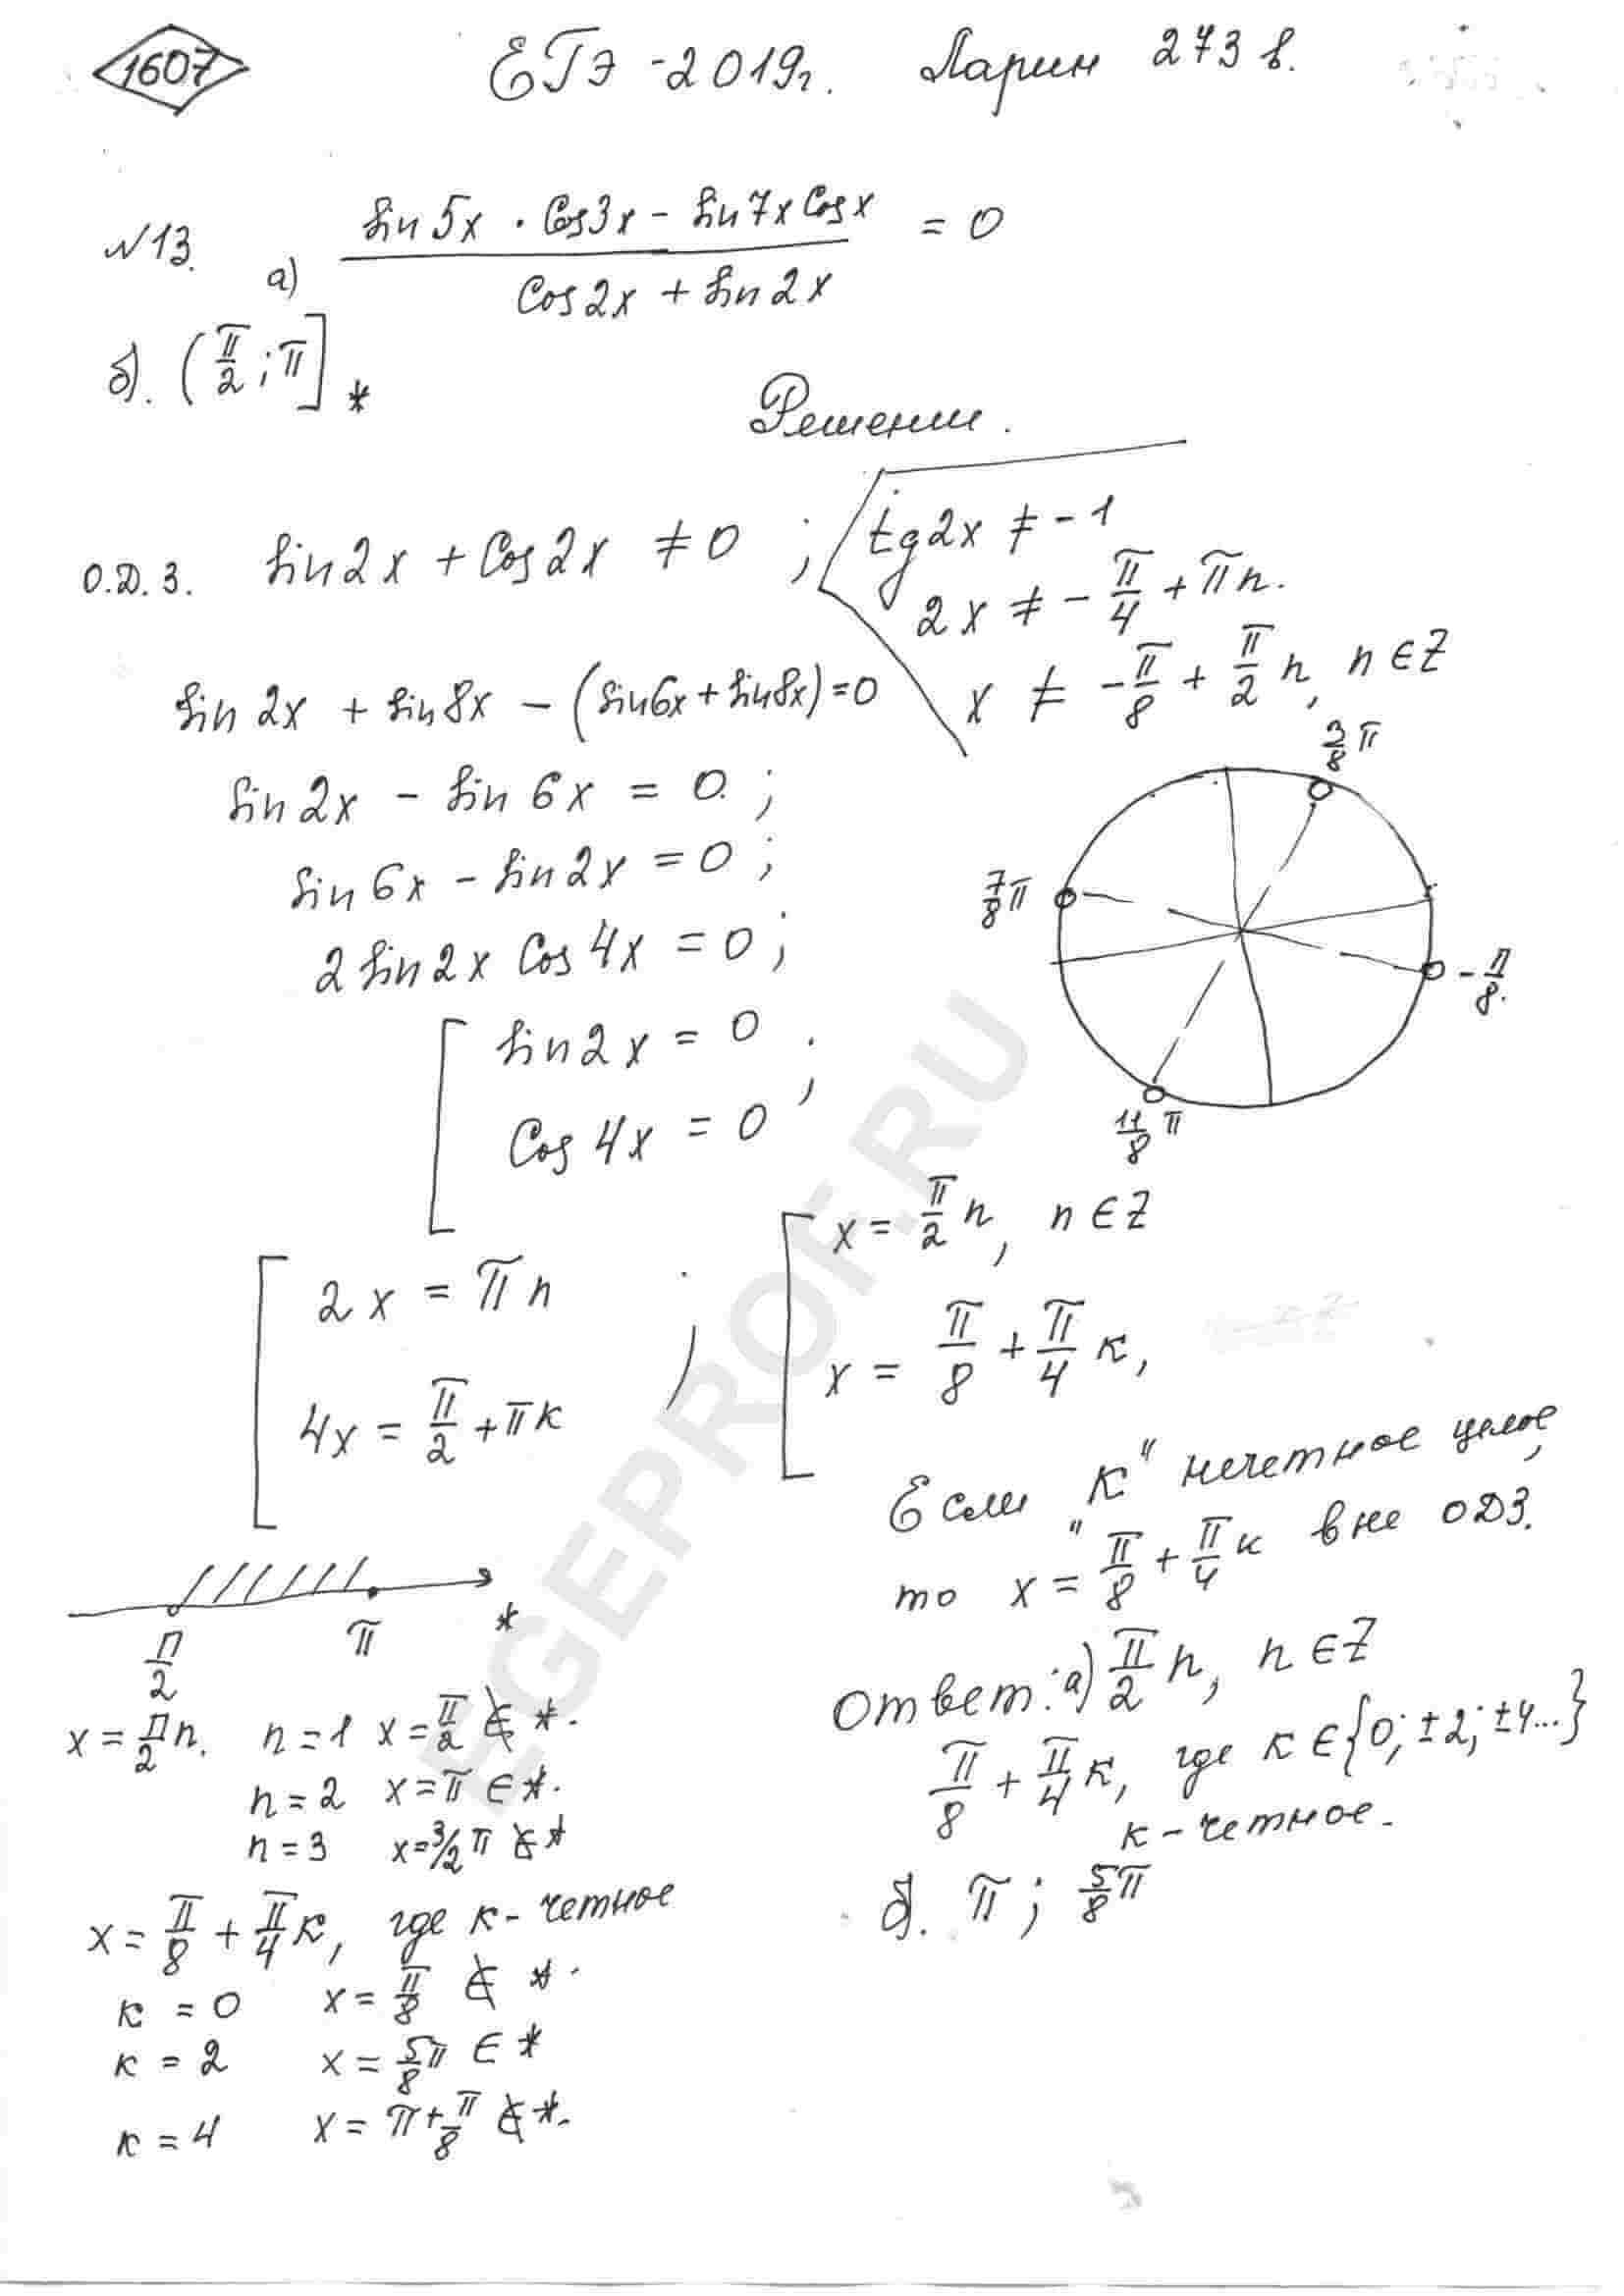 1607
ЕГЭ-2019г. Ларин 273 в.
№13. а) (sin5x · cos3x − sin7x cosx) / (cos2x + sin2x) = 0
б). (π/2; π] *
Решении.
О.Д.З. sin2x + cos2x ≠ 0 ; tg2x ≠ -1
2x ≠ -π/4 + πn.
x ≠ -π/8 + π/2 n, n ∈ Z
sin2x + sin8x − (sin6x + sin8x) = 0
sin2x − sin6x = 0 ;
sin6x − sin2x = 0 ;
2 sin2x cos4x = 0 ;
[ sin2x = 0
cos4x = 0 ;
3/8 π
7/8 π
-π/8.
11/8 π
[ 2x = πn
4x = π/2 + πк ;
[ x = π/2 n, n ∈ Z
x = π/8 + π/4 к,
Если "К" нечетное целое,
то x = π/8 + π/4 к вне ОДЗ.
π/2 π *
x = π/2 n. n = 1 x = π/2 ∉ *.
n = 2 x = π ∈ *.
n = 3 x = 3/2 π ∉ *
x = π/8 + π/4 к, где к - четное
к = 0 x = π/8 ∉ *.
к = 2 x = 5/8 π ∈ *
к = 4 x = π + π/8 ∉ *.
Ответ: а) π/2 n, n ∈ Z
π/8 + π/4 к, где к ∈ {0; ±2; ±4...}
к - четное.
б). π ; 5/8 π
EGEPROF.RU